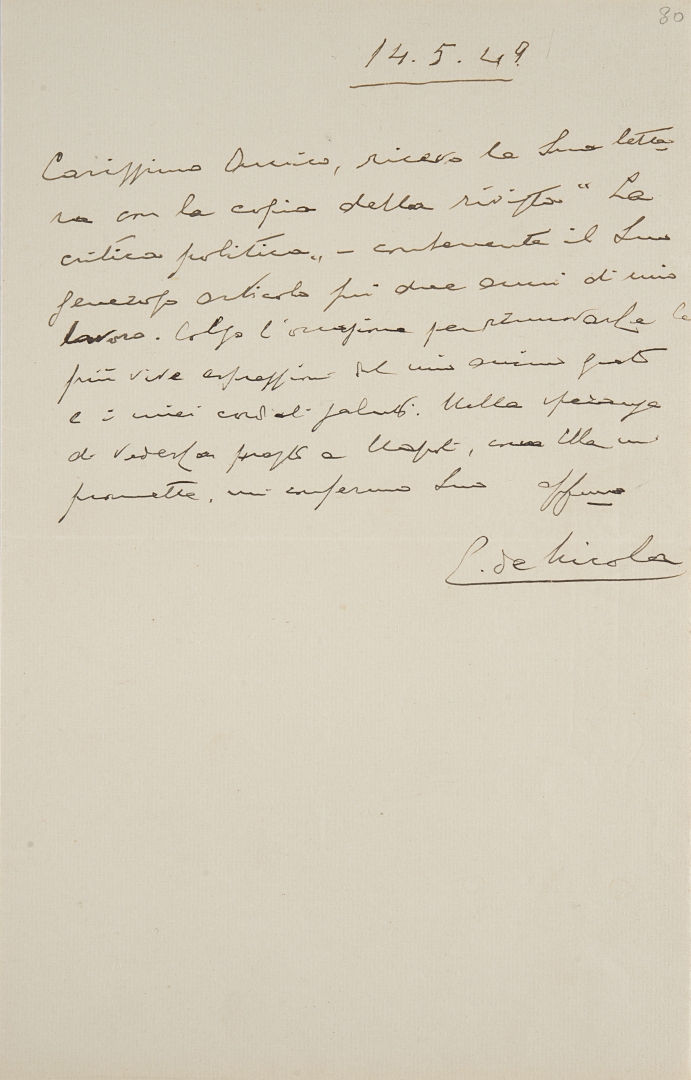 80
14.5.49.
Carissimo Amico, ricevo la Sua lette
ra con la copia della rivista " La
critica politica„ - contenente il Suo
generoso articolo sui due anni di mio
lavoro. Colgo l'occasione per rinnovarLe le
più vive espressioni del mio animo grato
e i miei cordiali saluti. Nella speranza
di vederLa presto a Napoli, come Ella mi
promette, mi confermo Suo affmo
E. de Nicola